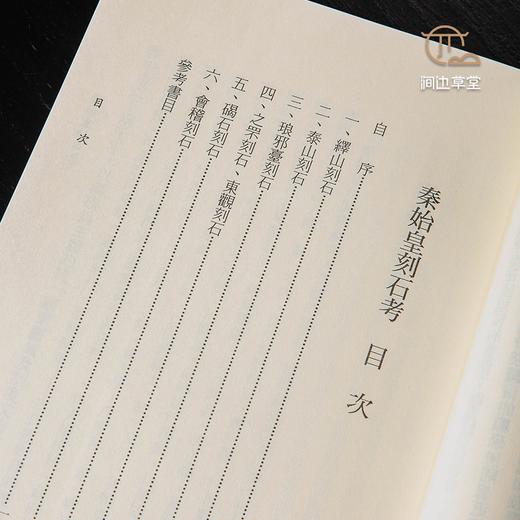 秦始皇刻石考 目次
自序
一、繹山刻石
二、泰山刻石
三、琅邪臺刻石
四、之罘刻石、東觀刻石
五、碣石刻石
六、會稽刻石
參考書目
目次
澗边草堂